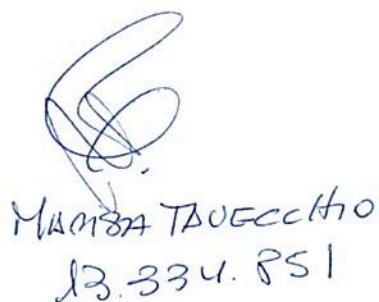 MARISA TAVECCHIO
13.334.851